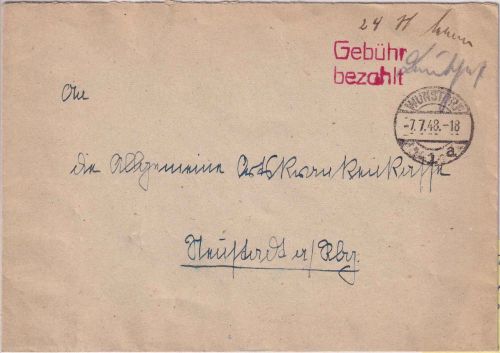 24
Gebühr
bezahlt
WUNSTORF
-7.7.48.-18
a
An
die Allgemeine Ortskrankenkasse
Neustadt a/Rbg.